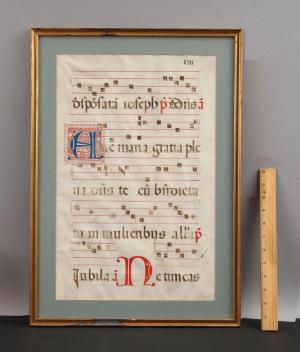 dispōsatā ioseph p̄ Dñs ā
Aue maria gratia ple
na dñs te cū bñdicta
tu in mulieribus alla p̄
Jubila ā Ne timeas